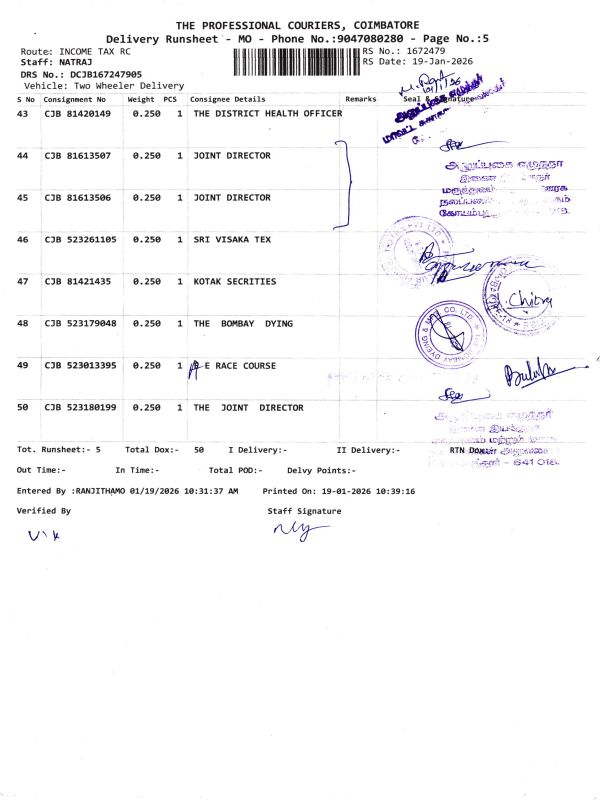 THE PROFESSIONAL COURIERS, COIMBATORE
Delivery Runsheet - MO - Phone No.:9047080280 - Page No.:5
Route: INCOME TAX RC
RS No.: 1672479
Staff: NATRAJ
RS Date: 19-Jan-2026
DRS No.: DCJB167247905
Vehicle: Two Wheeler Delivery
S No Consignment No Weight PCS Consignee Details Remarks Seal & Signature
43 CJB 81420149 0.250 1 THE DISTRICT HEALTH OFFICER
44 CJB 81613507 0.250 1 JOINT DIRECTOR
45 CJB 81613506 0.250 1 JOINT DIRECTOR
46 CJB 523261105 0.250 1 SRI VISAKA TEX
47 CJB 81421435 0.250 1 KOTAK SECRITIES
Chitra
48 CJB 523179048 0.250 1 THE BOMBAY DYING
49 CJB 523013395 0.250 1 E RACE COURSE
50 CJB 523180199 0.250 1 THE JOINT DIRECTOR
Tot. Runsheet:- 5 Total Dox:- 50 I Delivery:- II Delivery:- RTN Dox:-
Out Time:- In Time:- Total POD:- Delvy Points:-
Entered By :RANJITHAMO 01/19/2026 10:31:37 AM Printed On: 19-01-2026 10:39:16
Verified By Staff Signature